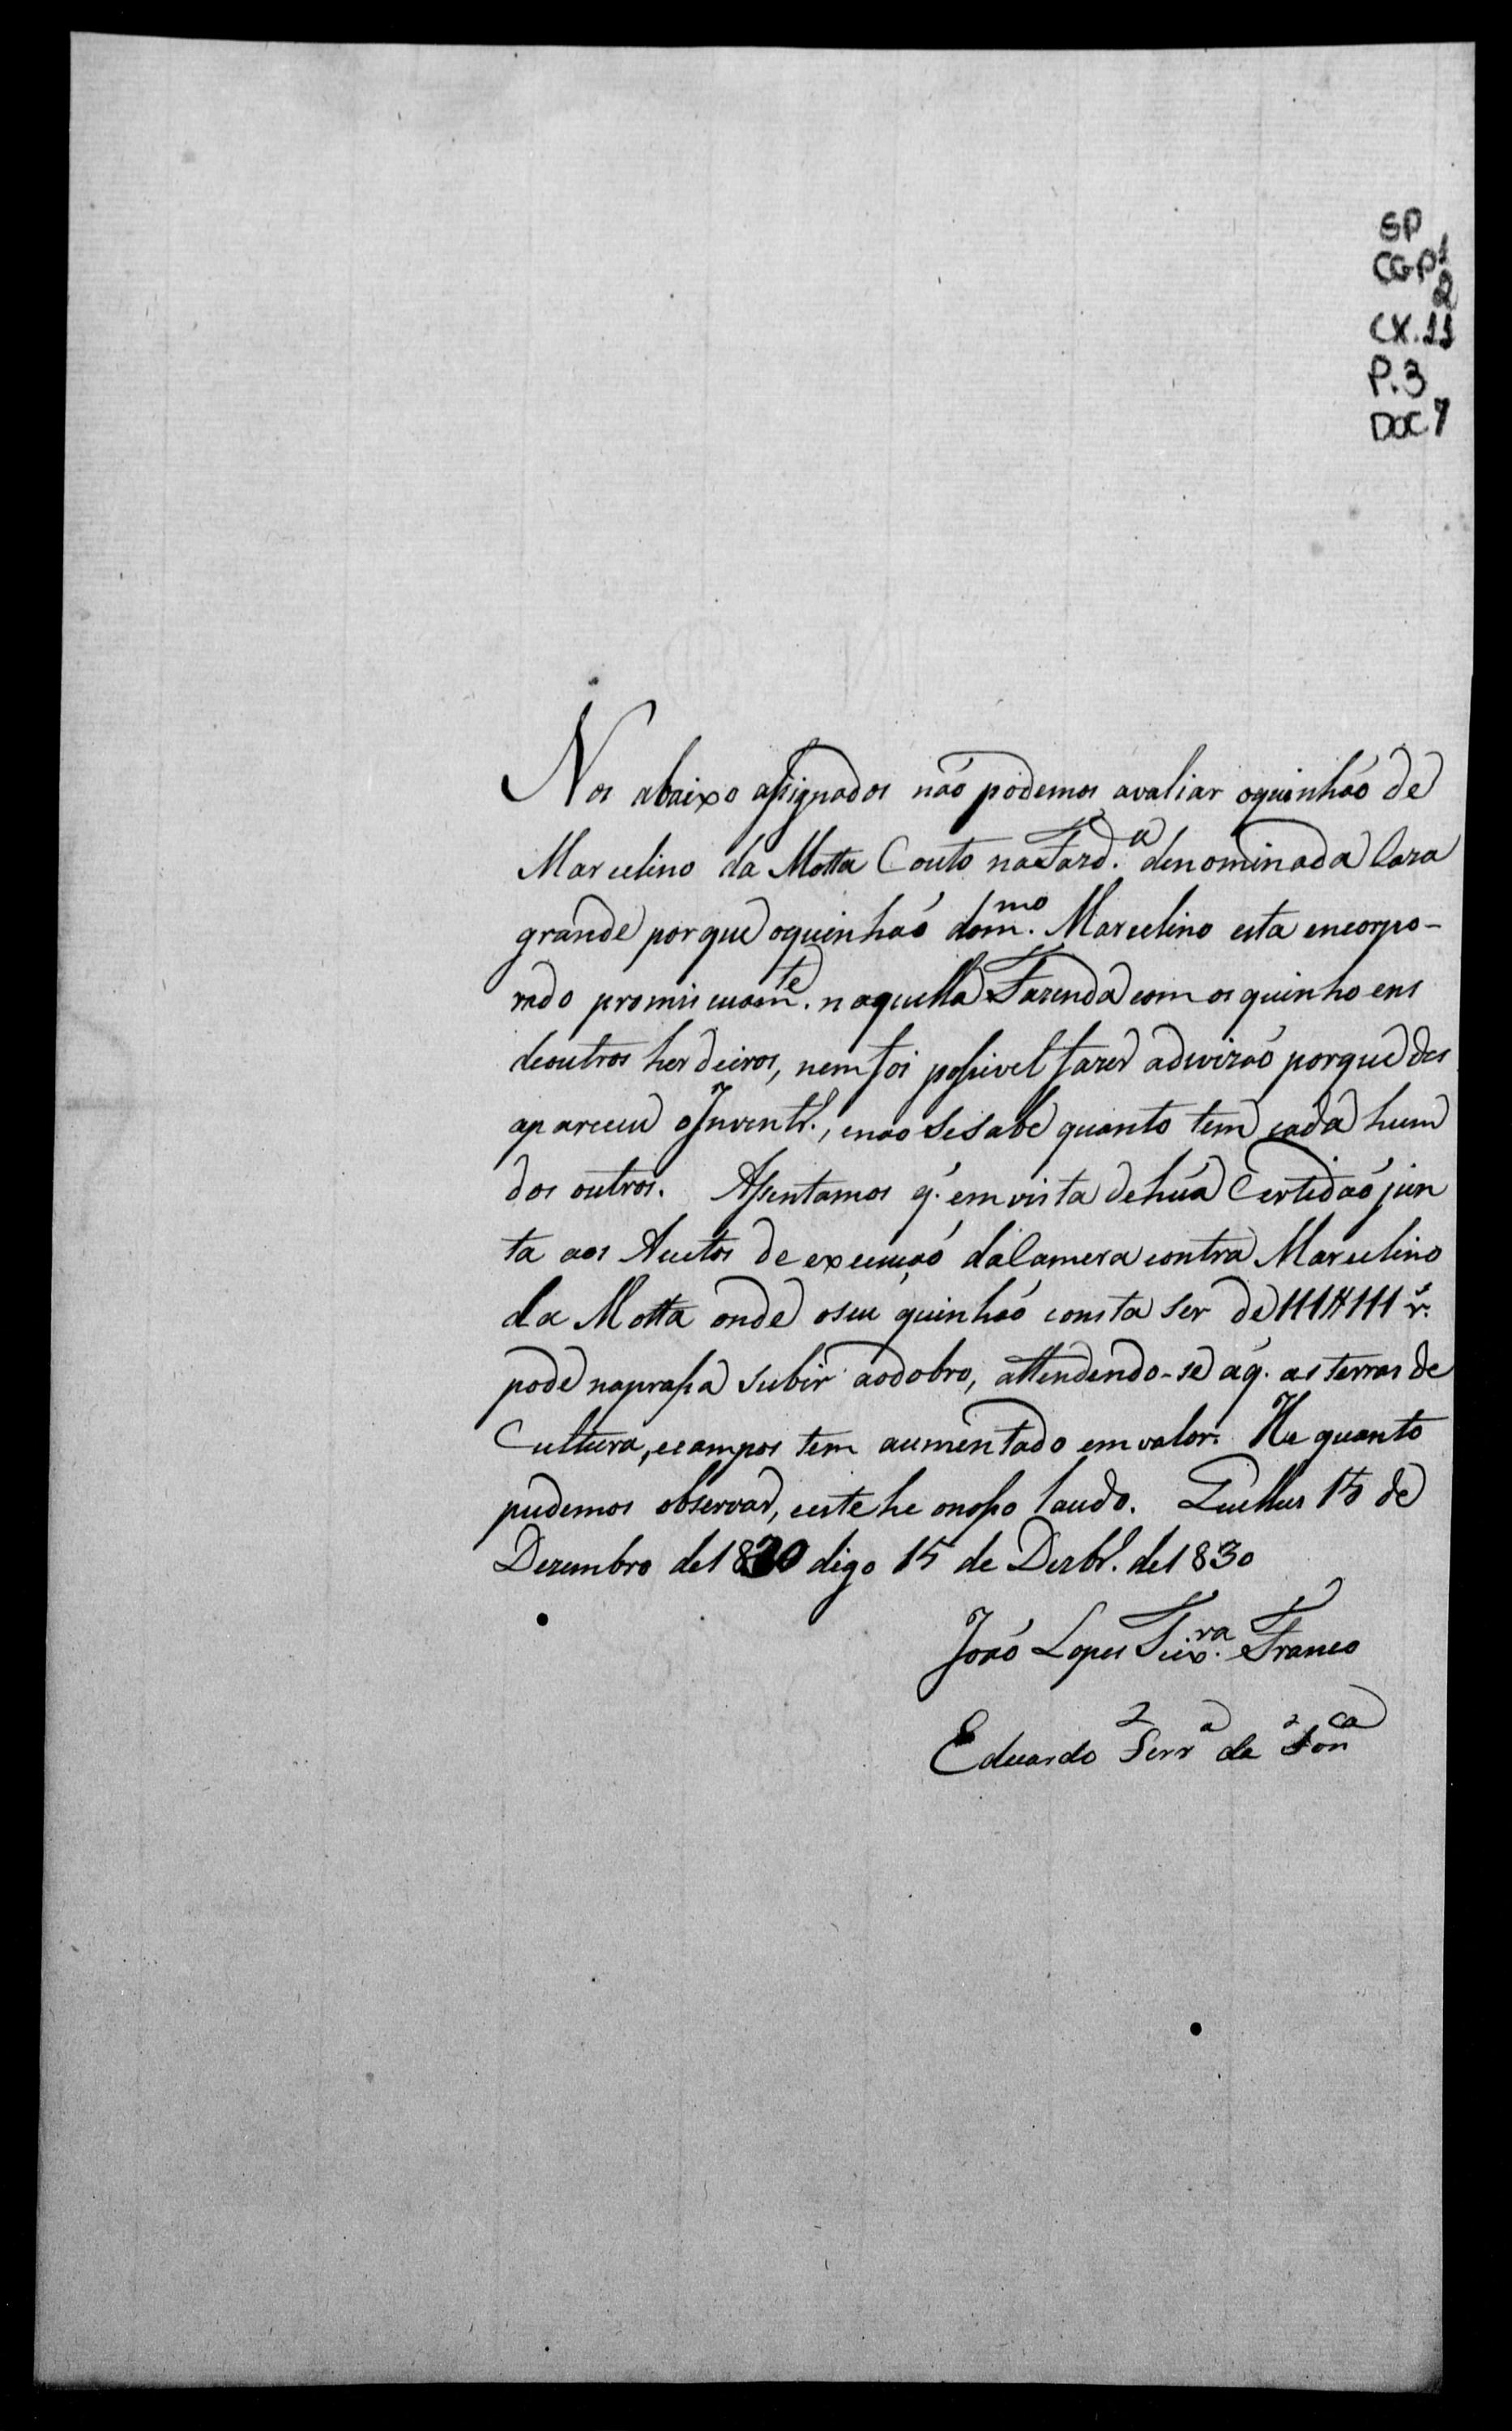 SP
CGP1
2
CX.11
P.3
DOC 7
Nos abaixo assignados não podemos avaliar oquinhaõ de
Marcelino da Motta Couto na Fazd.ª denominada Caza
grande porque oquinhaõ dom.mo Marcelino esta encorpo-
rado promiscuam.te naquella Fazenda com os quinhoens
deoutros herdeiros, nem foi possivel fazer adivizaõ porque des
apareceu oInventr.º, enao sesabe quanto tem cada hum
dos outros. Assentamos q. em vista de húa Certidaõ jun
ta aos Auctos de execuçaõ daCamera contra Marcelino
da Motta onde oseu quinhaõ consta ser de 111#111 r.s
pode naprassa subir aodobro, attendendo-se áq. as terras de
Cultura, ecampos tem aumentado em valor. He quanto
pudemos observar, eeste he onosso laudo. Quelluz 15 de
Dezembro de 1820 digo 15 de Dezbr.º de 1830
Joaõ Lopes Teix.ra Franco
Eduardo Ferrª da Fonca